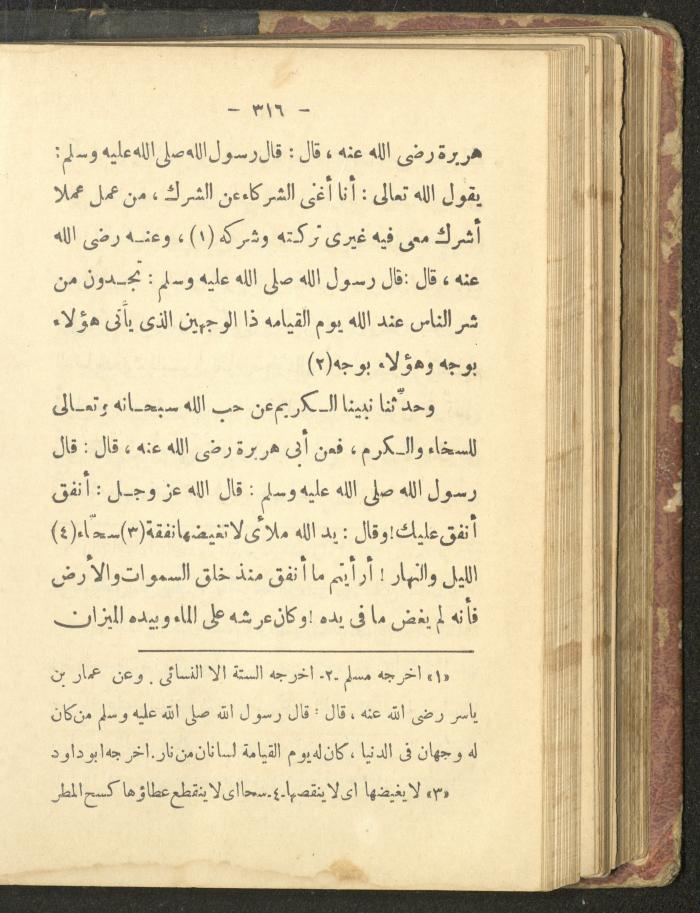 - ٣١٦ -
هريرة رضى الله عنه ، قال : قال رسول الله صلى الله عليه وسلم :
يقول الله تعالى : أنا أغنى الشركاء عن الشرك ، من عمل عملا
أشرك معى فيه غيرى تركته وشركه (١) ، وعنه رضى الله
عنه ، قال : قال رسول الله صلى الله عليه وسلم : تجدون من
شر الناس عند الله يوم القيامه ذا الوجهين الذى يأتى هؤلاء
بوجه وهؤلاء بوجه (٢)
وحدّثنا نبينا الكريم عن حب الله سبحانه وتعالى
للسخاء والكرم ، فعن أبى هريرة رضى الله عنه ، قال : قال
رسول الله صلى الله عليه وسلم : قال الله عز وجل : أنفق
أنفق عليك ! وقال : يد الله ملأى لا تغيضها نفقة (٣) سحّاء (٤)
الليل والنهار ! أرأيتم ما أنفق منذ خلق السموات والأرض
فأنه لم يغض ما فى يده ! وكان عرشه على الماء وبيده الميزان
«١» اخرجه مسلم -٢- اخرجه الستة الا النسائى . وعن عمار بن
ياسر رضى الله عنه ، قال : قال رسول الله صلى الله عليه وسلم من كان
له وجهان فى الدنيا ، كان له يوم القيامة لسانان من نار . اخرجه ابو داود
«٣» لا يغيضها اى لا ينقصها -٤- سحا اى لا ينقطع عطاؤها كسح المطر